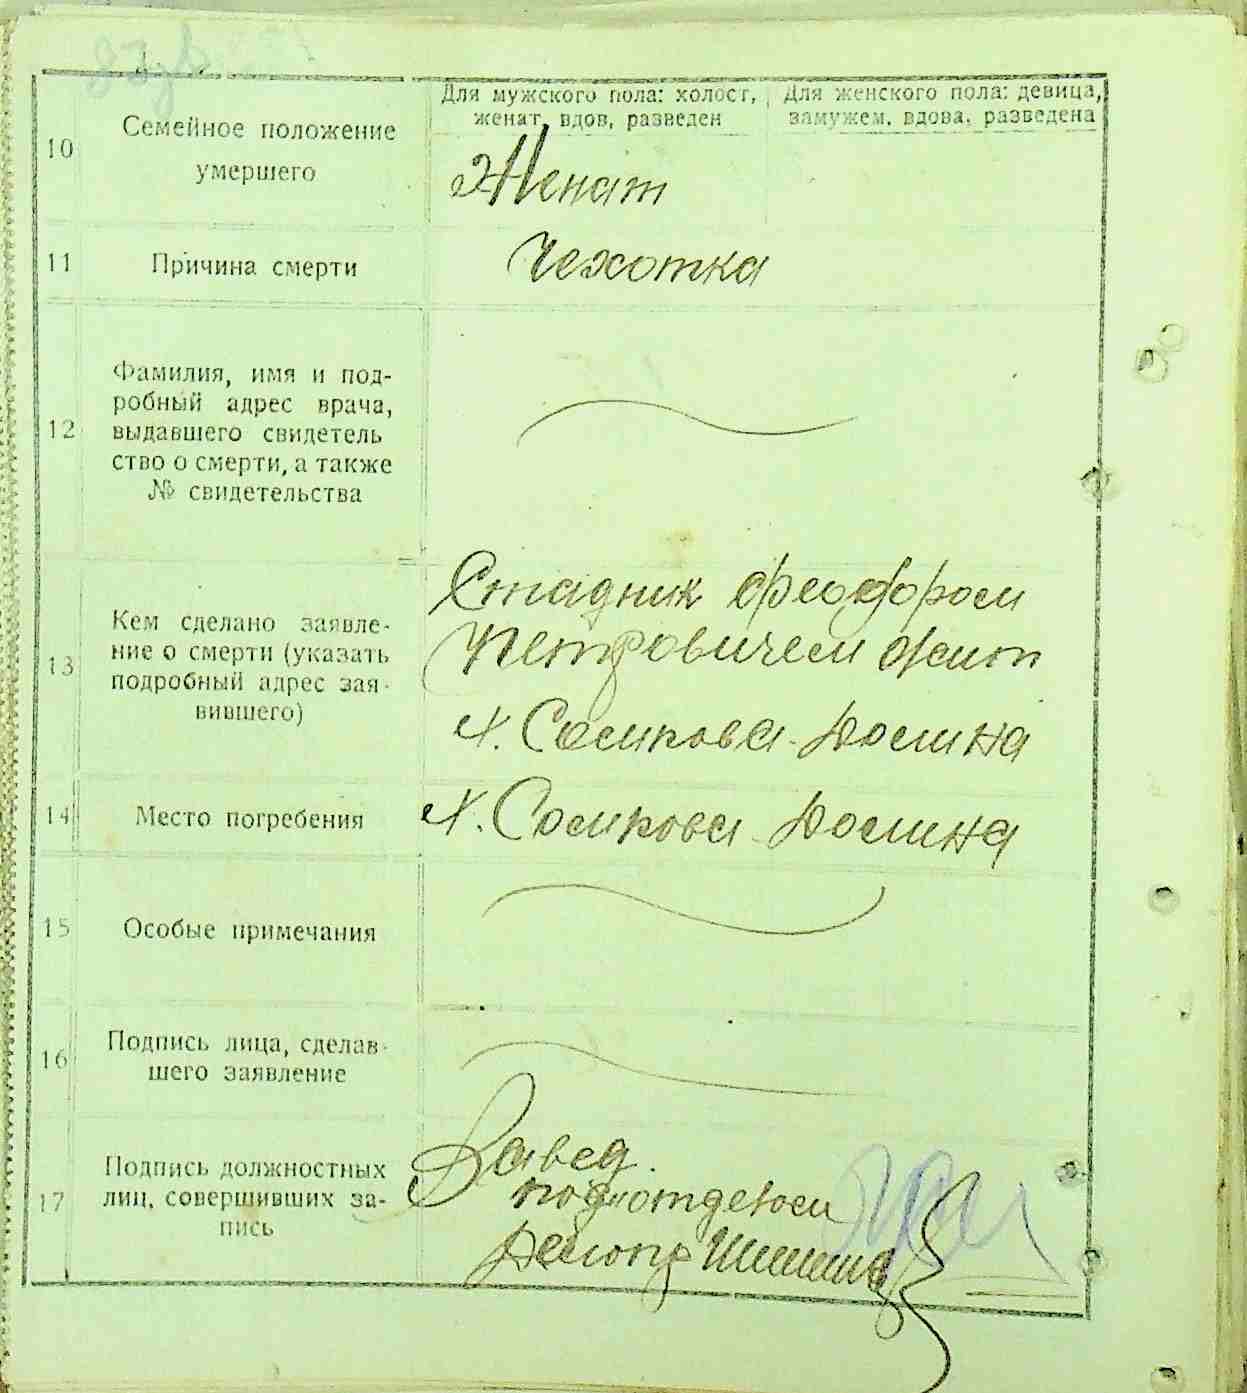 10
Семейное положение
умершего
Для мужского пола: холост,
женат, вдов, разведен
Для женского пола: девица,
замужем, вдова, разведена
Женат
11
Причина смерти
Чехотка
12
Фамилия, имя и под-
робный адрес врача,
выдавшего свидетель
ство о смерти, а также
№ свидетельства
13
Кем сделано заявле-
ние о смерти (указать
подробный адрес зая-
вившего)
Стадник Феодором
Петровичем жит
х. Сомикова-Долина
14
Место погребения
х. Сомикова-Долина
15
Особые примечания
16
Подпись лица, сделав-
шего заявление
17
Подпись должностных
лиц, совершивших за-
пись
Завед.
подотделом